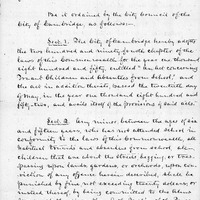 Be it ordained by the City Council of the
City of Cambridge as follows:
Sect. 1. The City of Cambridge hereby adopts
the two hundred and ninety fourth chapter of the
laws of this commonwealth for the year one thousand
eight hundred and fifty, entitled "an act concerning
Truant children and absentees from school," and
the act in addition thereto, passed the twentieth day
of May, in the year one thousand eight hundred and
fifty two, and avails itself of the provisions of said acts.
Sect. 2. Any minor between the ages of six
and fifteen years, who has not attended school in
conformity to the laws of this commonwealth, all
habitual truants and absentees from school, all
children that are about the streets begging, or tres-
passing upon lands, gardens, or orchards, upon con-
viction of any offence herein described, shall be
punished by fine not exceeding twenty dollars, or
instead thereof, by being committed to the Alms